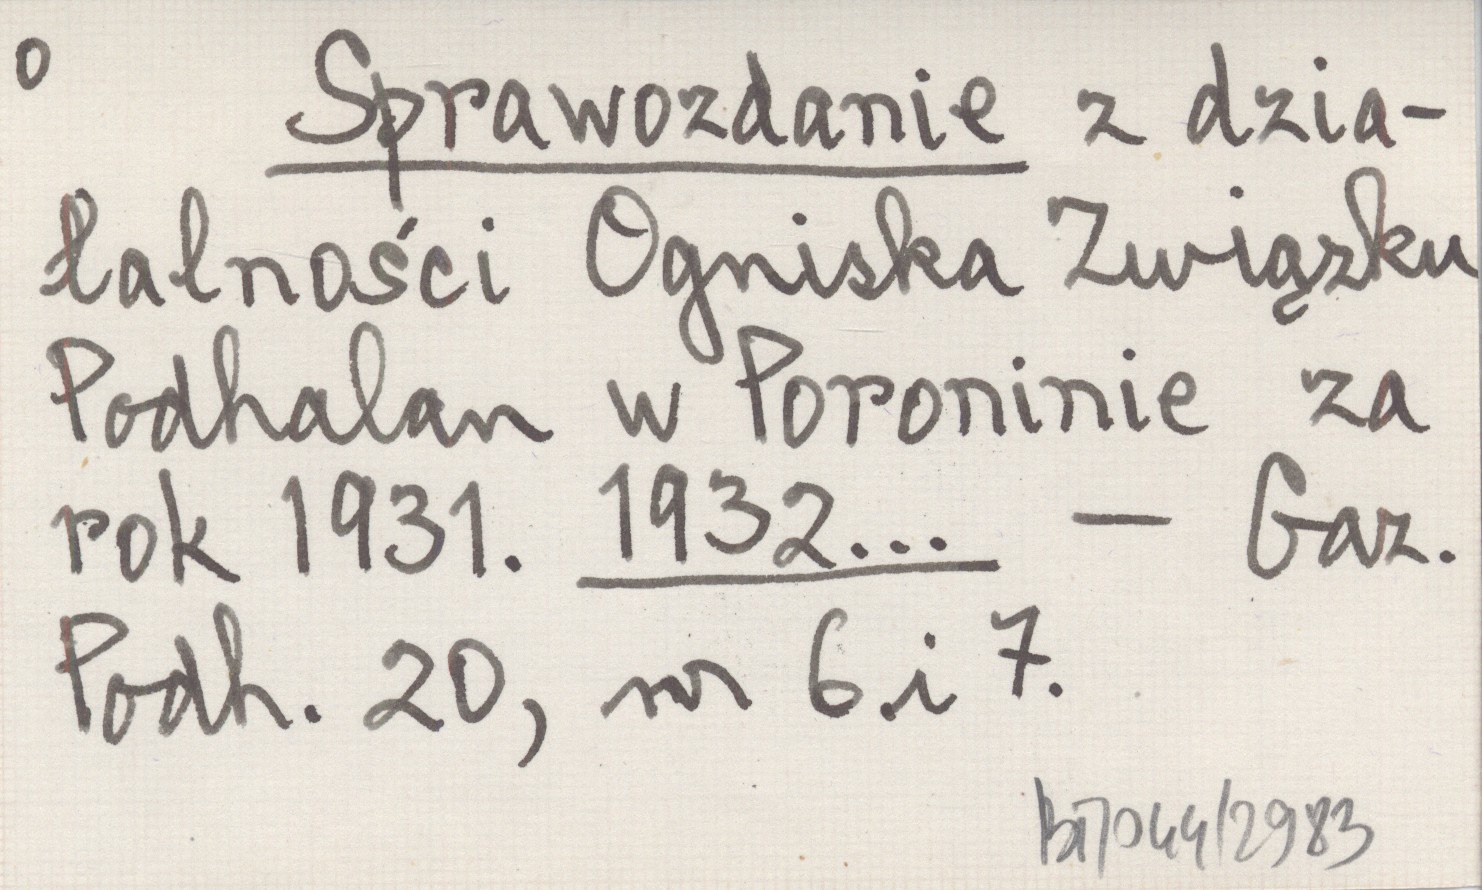 o Sprawozdanie z dzia-
łalności Ogniska Związku
Podhalan w Poroninie za
rok 1931. 1932... — Gaz.
Podh. 20, nr 6 i 7.
/2983